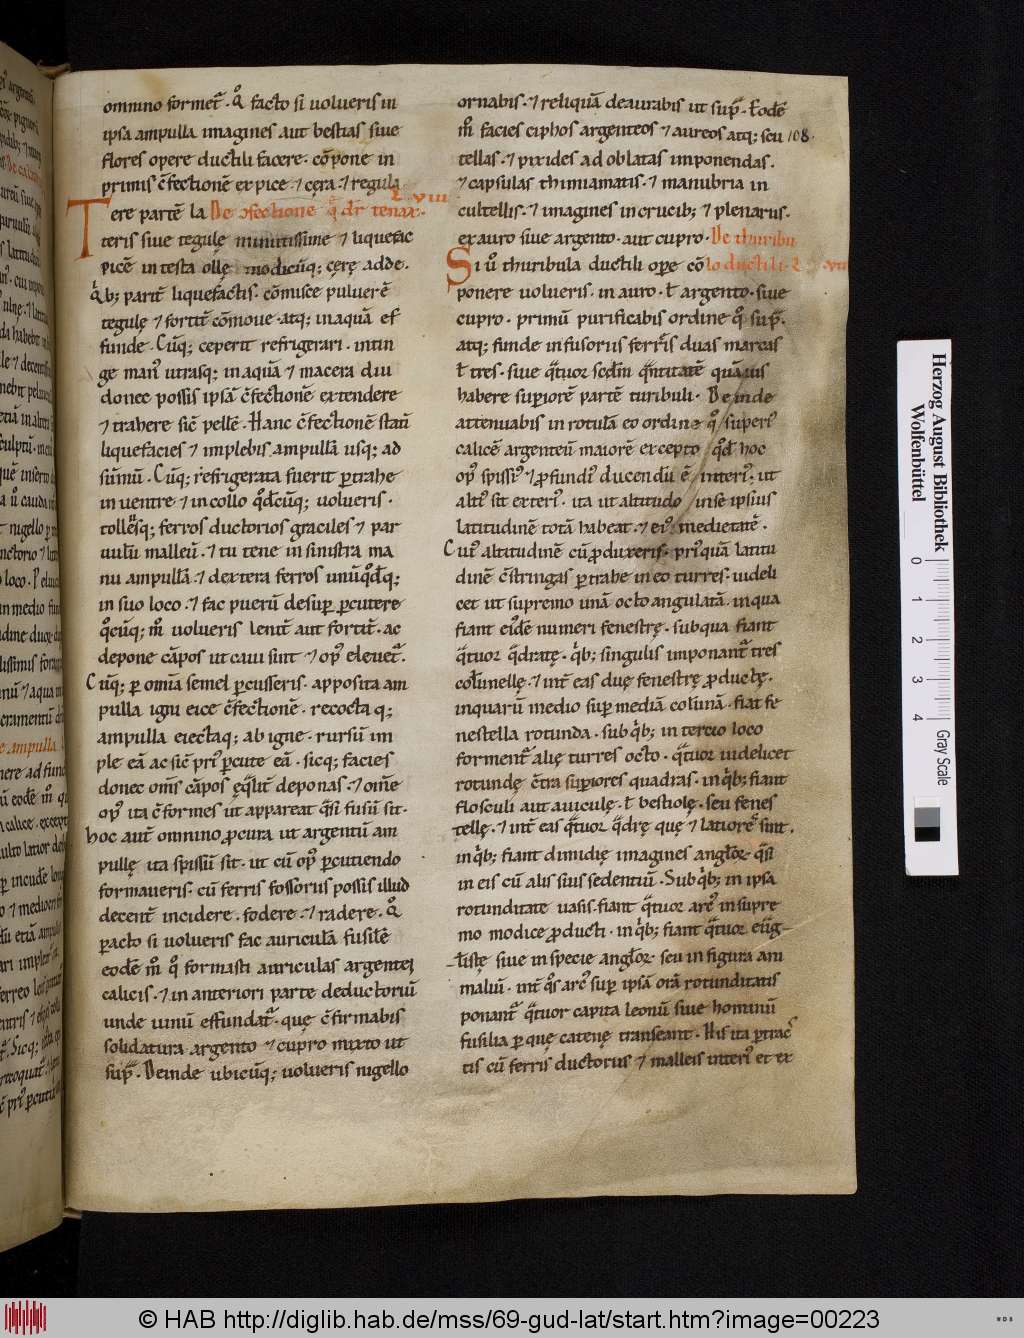 omnino formet᷑. Qͦ facto si uolueris in
ipsa ampulla imagines aut bestias siue
flores opere ductili facere. cōpone in
primis c̄fectionē ex pice. ⁊ cęra. ⁊ regula
Tere partē la De ɔfectione q̄ dr̄ tenax. LVIII
teris siue tegulę minutissime ⁊ liquefac
picē in testa ollę modicūq; cęrę adde.
q̇b; parit̄ liquefactis. cōmisce puluerē
tegulę ⁊ fortit̄ cōmoue. atq; in aquā ef
funde. Cūq; ceperit refrigerari. intin
ge man᷒ utrasq; in aquā ⁊ macera diu
donec possis ipsā c̄fectionē extendere
⁊ trahere sic̄ pellē. Hanc c̄fectionē statī
liquefacies ⁊ implebis ampullā usq; ad
sūmū. Cūq; refrigerata fuerit ꝑtrahe
in uentre ⁊ in collo qͦdcūq; uolueris.
tollēsq; ferros ductorios graciles ⁊ par
uulū malleū. ⁊ tu tene in sinistra ma
nu ampullā ⁊ dextera ferros unūqͦdq;
in suo loco. ⁊ fac puerū desuꝑ ꝑcutere
qͦcūq; m̊ uolueris lenit̄ aut fortit̄. ac
depone cāpos ut caui sint ⁊ op᷒ eleuet᷑.
Cūq; ꝑ omīa semel ꝑcusseris. apposita am
pulla igni eice c̄fectionē. recocta q;
ampulla eiectaq; ab igne. rursū im
ple eā ac sic̄ pri᷒ ꝑcute eā. sicq; facies
donec om̄s cāpos ęq̄lit̄ deponas. ⁊ om̄e
op᷒ ita c̄formes ut appareat q̄si fusū sit.
hoc aut̄ omnino ꝓcura ut argentū am
pullę ita spissū sit. ut cū op᷒ ꝑcutiendo
formaueris. cū ferris fossoriis possis illud
decent̄ incidere. fodere. ⁊ radere. Qͦ
ꝑacto si uolueris fac auriculā fusilē
eodē m̊ qͦ formasti auriculas argentei
calicis. ⁊ in anteriori parte deductoriū
unde uinū effundat᷑. quę c̄firmabis
solidatura argento ⁊ cupro mixto ut
sup̄. Deinde ubicūq; uolueris nigello
ornabis. ⁊ reliquā deaurabis ut sup̄. Eodē
m̊ facies ciphos argenteos ⁊ aureos atq; scu 108.
tellas. ⁊ pixides ad oblatas imponendas.
⁊ capsulas thimiamatis. ⁊ manubria in
cultellis. ⁊ imagines in crucib; ⁊ plenariis.
ex auro siue argento. aut cupro. De thuribu
Si u᷒ thuribula ductili oꝑe cō lo ductili. L
ponere uolueris. in auro. ł argento. siue
cupro. primū purificabis ordine qͦ sup̄.
atq; funde infusoriis ferris duas marcas
ł tres. siue q̄tuor scdm̄ q̄ntitatē quā uis
habere suꝑiorē partē turibuli. Deinde
attenuabis in rotulā eo ordine qͦ superi᷒
calicē argenteū maiorē excepto qͦd hoc
op᷒ spissi᷒ ⁊ ꝓfundi᷒ ducendū ē interi᷒. ut
alti᷒ sit exteri᷒. ita ut altitudo in se ipsius
latitudinē totā habeat. ⁊ ei᷒ medietatē.
Cui᷒ altitudinē cū ꝓduxeris. pri᷒quā latitu
dinē c̄stringas ꝑtrahe in eo turres. uideli
cet ut supremo unā octo angulatā. in qua
fiant ei᷒dē numeri fenestrę. sub qua fiant
q̄tuor q̄dratę. q̇b; singulis imponant᷑ tres
colūnellę. ⁊ int̄ eas duę fenestrę ꝓductę.
in quarū medio suꝑ mediā colūnā. fiat fe
nestella rotunda. sub q̇b; in tercio loco
forment᷑ alię turres octo. q̄tuor uidelicet
rotundę c̄tra suꝑiores quadras. in q̇b; fiant
flosculi aut auiculę. ł bestiolę. seu fenes
tellę. ⁊ int̄ eas q̄tuor q̄drę quę ⁊ latiores sint.
in q̇b; fiant dimidię imagines angl̄oꝝ. q̄si
in eis cū alis suis sedentiū. Sub q̇b; in ipsa
rotunditate uasis. fiant q̄tuor arc᷒ in supre
mo modice ꝓducti. in q̇b; fiant q̄tuor euāg
listę siue in specie angl̄oꝝ. seu in figura ani
maliū. int̄ qͦs arc᷒ suꝑ ipsā orā rotunditatis
ponant᷑ q̄tuor capita leonū siue hominū
fusilia ꝑ quę catenę transeant. His ita ꝑtrac
tis cū ferris ductoriis ⁊ malleis interi᷒ et ex
Herzog August Bibliothek
Wolfenbüttel
0 1 2 3 4
Gray Scale
© HAB http://diglib.hab.de/mss/69-gud-lat/start.htm?image=00223